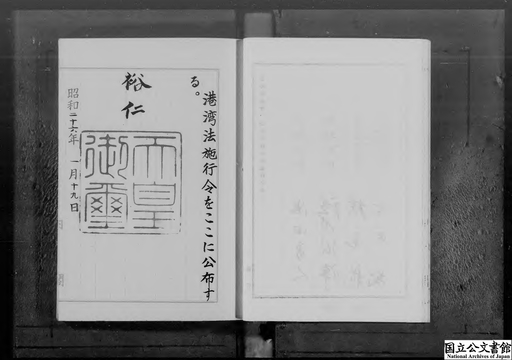 港湾法施行令をここに公布す
る。
裕仁
天皇
御璽
昭和二十六年一月十九日
国立公文書館
National Archives of Japan